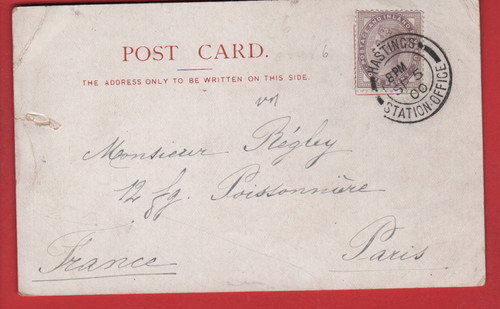 POST CARD.
THE ADDRESS ONLY TO BE WRITTEN ON THIS SIDE.
6
POSTAGE AND INLAND
HASTINGS
8 PM
SP 5
00
STATION-OFFICE
Monsieur Régley
12 fg. Poissonnière
Paris
France